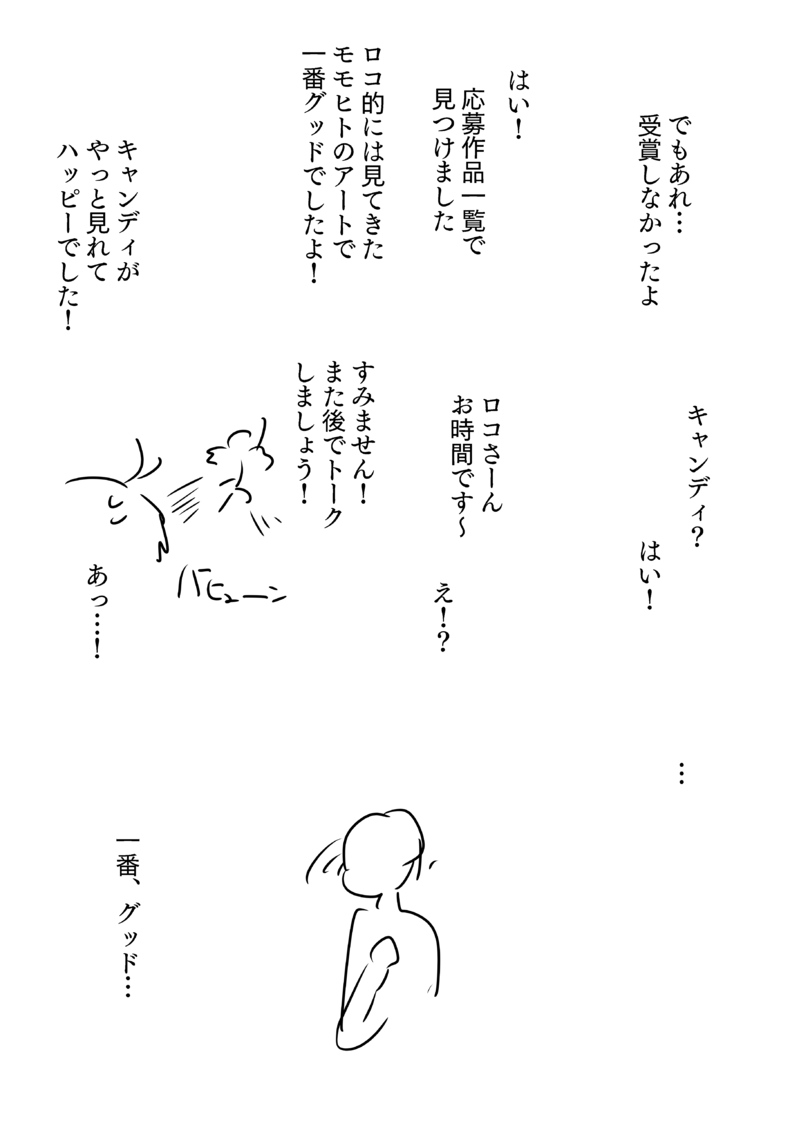 でもあれ…
受賞しなかったよ
はい！
応募作品一覧で
見つけました
ロコ的には見てきた
モモヒトのアートで
一番グッドでしたよ！
キャンディが
やっと見れて
ハッピーでした！
キャンディ？
はい！
ロコさーん
お時間です～
え！？
すみません！
また後でトーク
しましょう！
バヒューン
あっ…！
…
一番、グッド…